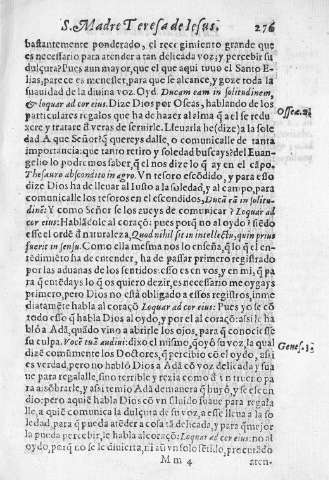 S. Madre Teresa de Iesus. 276
bastantemente ponderado, el recogimiento grande que
es necessario para atender a tan delicada voz; y percebir su
dulçura? Pues aun mayor, que el que aqui tuuo el Santo E-
lias, parece es menester, para que se alcance, y goze toda la
suauidad de la diuina voz. Oyd. Ducam eam in solitudinem,
& loquar ad cor eius. Dize Dios por Oseas, hablando de los
Osseæ. 2.
particulares regalos que ha de hazer al alma q̃ a el se redu-
xere y tratare d̃ veras de seruirle. Lleuarla he (dize) a la sole
dad. A que Señor? q̃ quereys dalle, o comunicalle de tanta
importãcia: que tanto retiro y soledad buscays? del Euan-
gelio lo podremos saber, q̃ el nos dize lo q̃ ay en el cãpo.
Thesauro abscondito in agro. Vn tesoro escõdido, y para esso
dize Dios ha de lleuar al Iusto a la soledad, y al campo, para
comunicalle los tesoros en el escondidos, Ducã eã in solitu-
dinẽ: Y como Señor se los aueys de comunicar? Loquar ad
cor eius: Hablãdole al coraçõ: pues porq̃ no al oydo? q̃ esse
es el ordẽ d̃ naturaleza, Quod nihil sit in intellectu, quin prius
fuerit in sensu. Como ella mesma nos lo enseña, q̃ lo q̃ el en-
rẽdimiẽto ha de entender, ha de passar primero registrado
por las aduanas de los sentidos: esso es en vos, y en mi, q̃ pa
ra q̃ entẽdays lo q̃ os quiero dezir, es necessario me oygays
primero, pero Dios no està obligado a essos registros, inme
diatamẽte habla al coraçõ Loquar ad cor eius: Pues yo se cõ
todo esso q̃ habla Dios al oydo, y por el al coraçõ: assi le ha
blò a Adã, quãdo vino a abrirle los ojos, para q̃ conociesse
su culpa. Vocẽ tuã audiui: dixo el mismo, q̃ oyò su voz, la qual
Genes. 3.
dizẽ comũmente los Doctores, q̃ percibio cõ el oydo, assi
es verdad, pero no hablò Dios a Adã cõ voz delicada y sua
ue para regalalle, sino terrible y rezia como d̃ vn trueno pa
ra assõbrarle, y assi temio Adã demanera q̃ huyò, y se escon
dio: pero aqui habla Dios cõ vn siluido suaue para regala
lle, a quiẽ comunica la dulçura de su voz, a esse lleua a la so
ledad, para q̃ pueda atẽder a cosa tã delicada, y para q̃ mejor
la pueda percebir, le habla al coraçõ: Loquar ad cor eius: no al
oydo, porq̃ no se diuierta, ni aũ vn solo sẽtido, procurãdo
M m 4 aten-